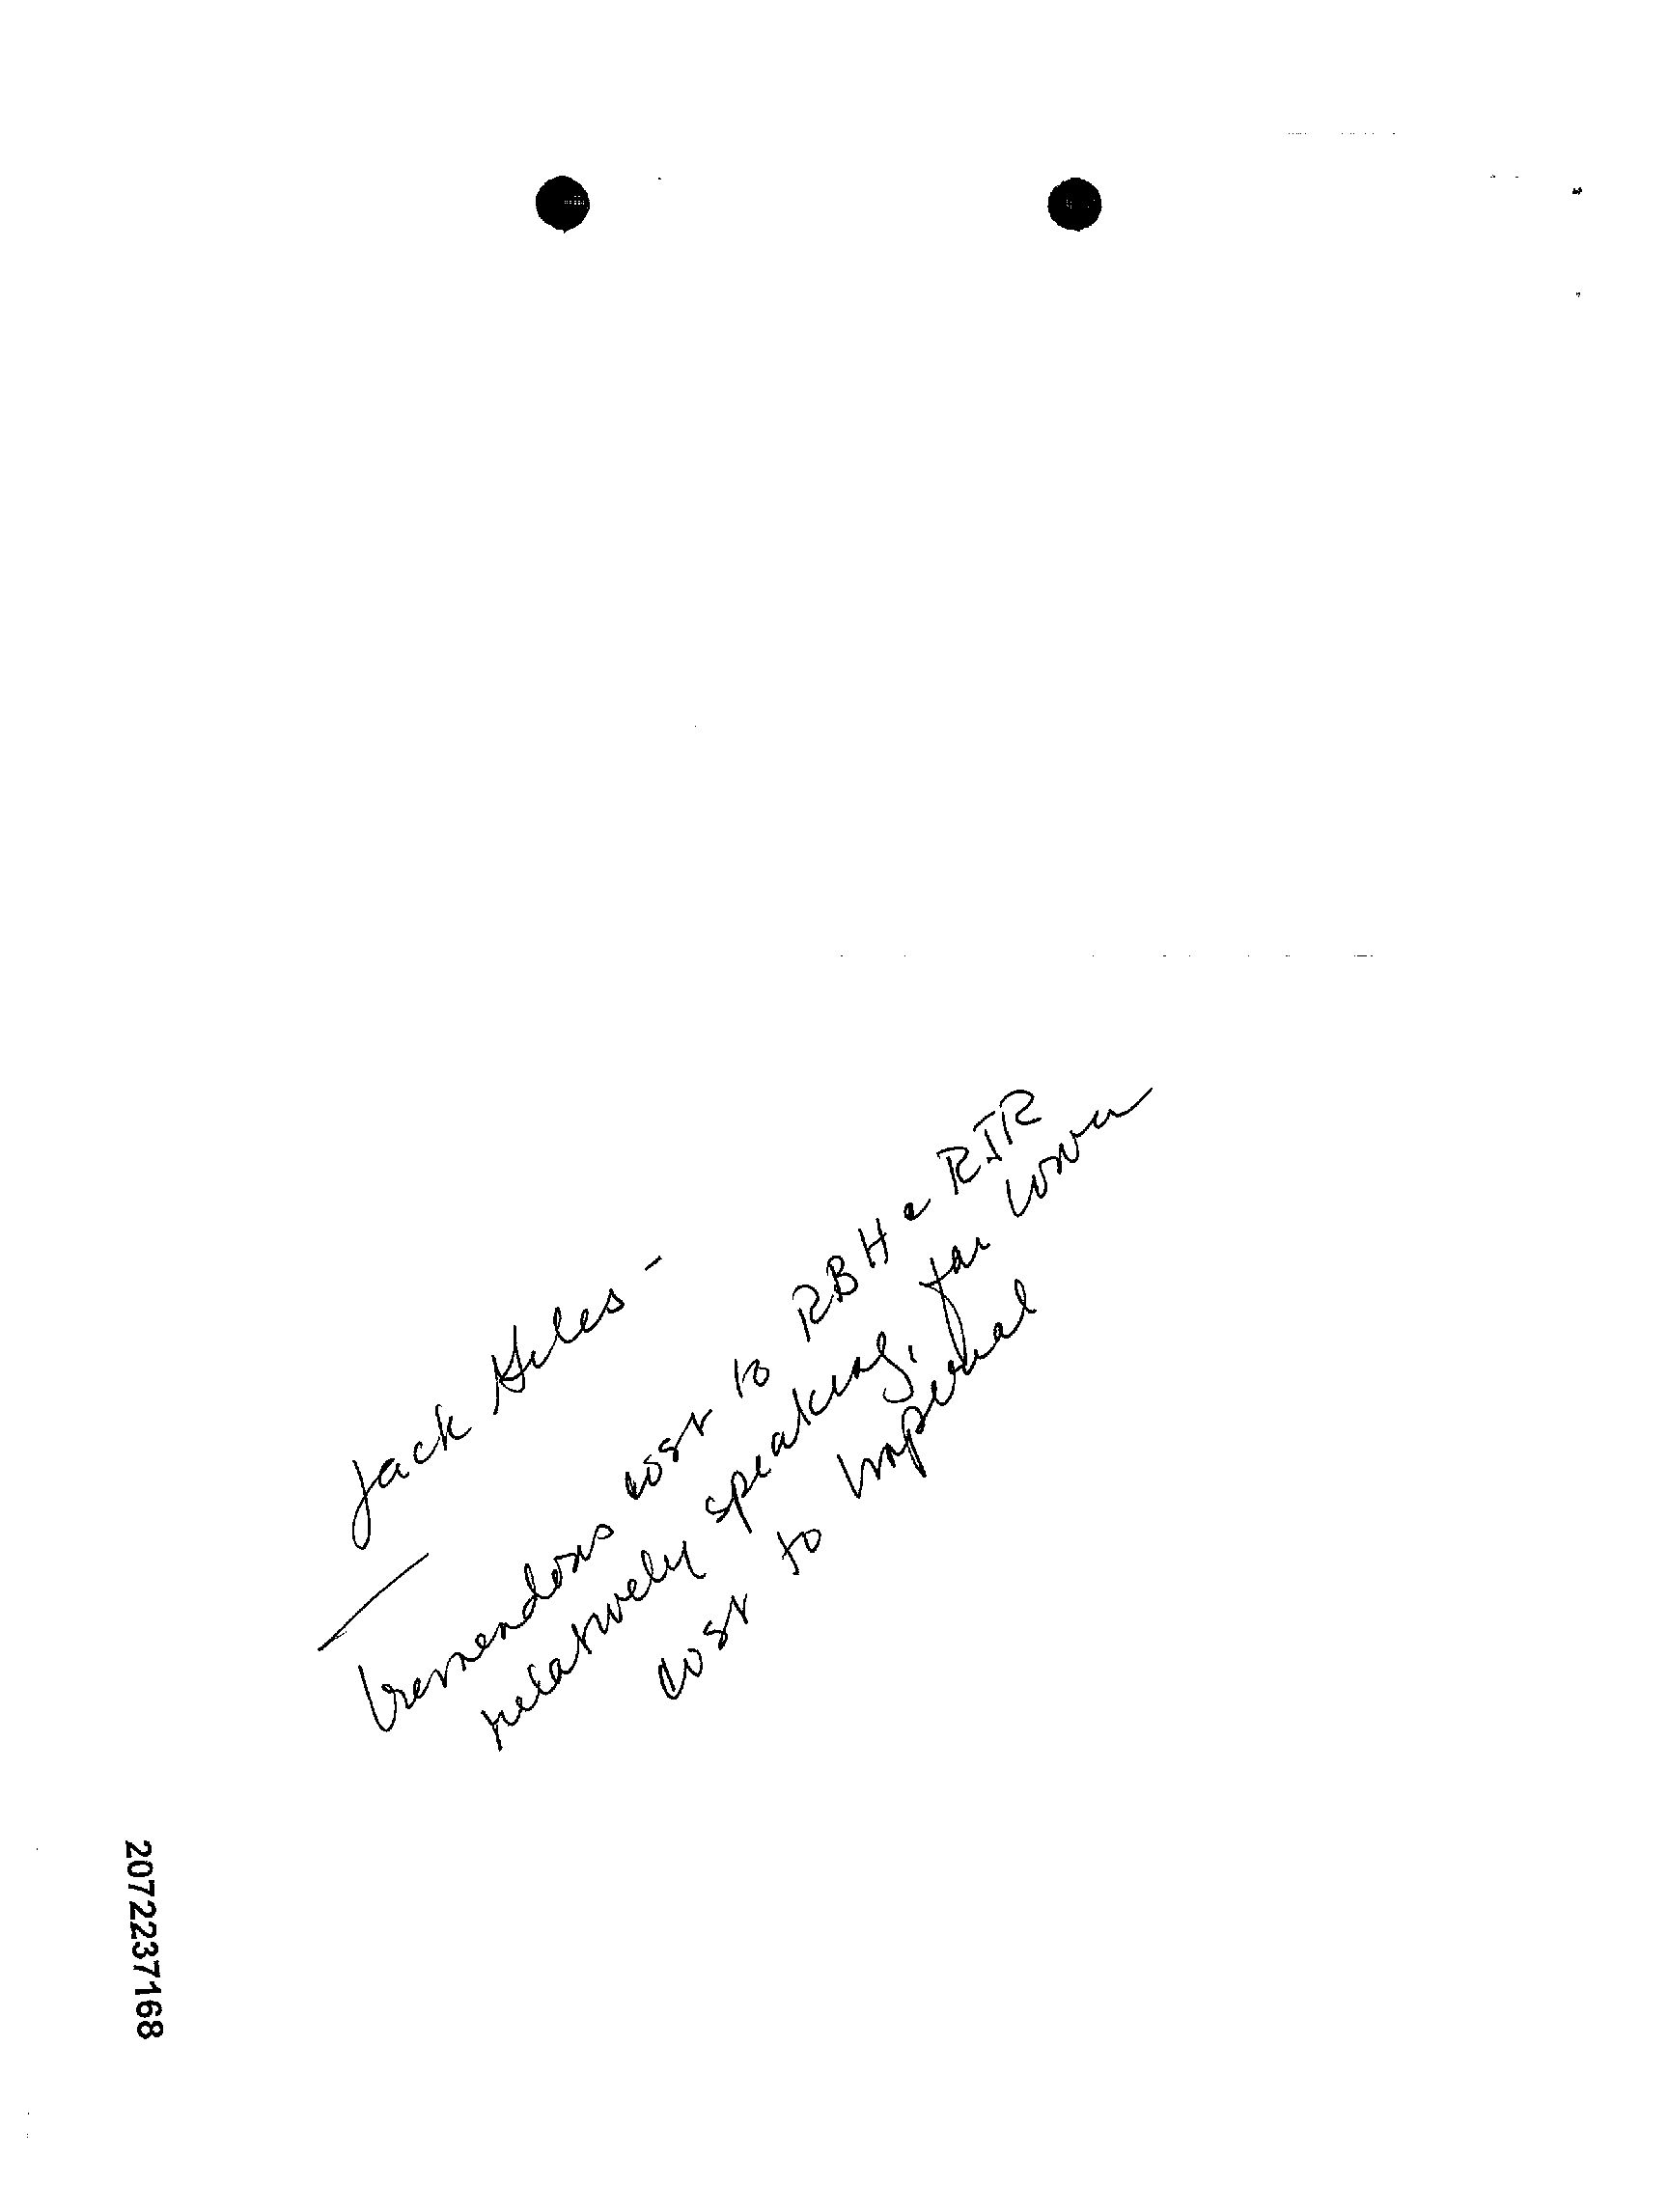 Jack
Tremendous cost to RBH & RJR
relatively speaking, far lower
cost to Imperial
2072237168